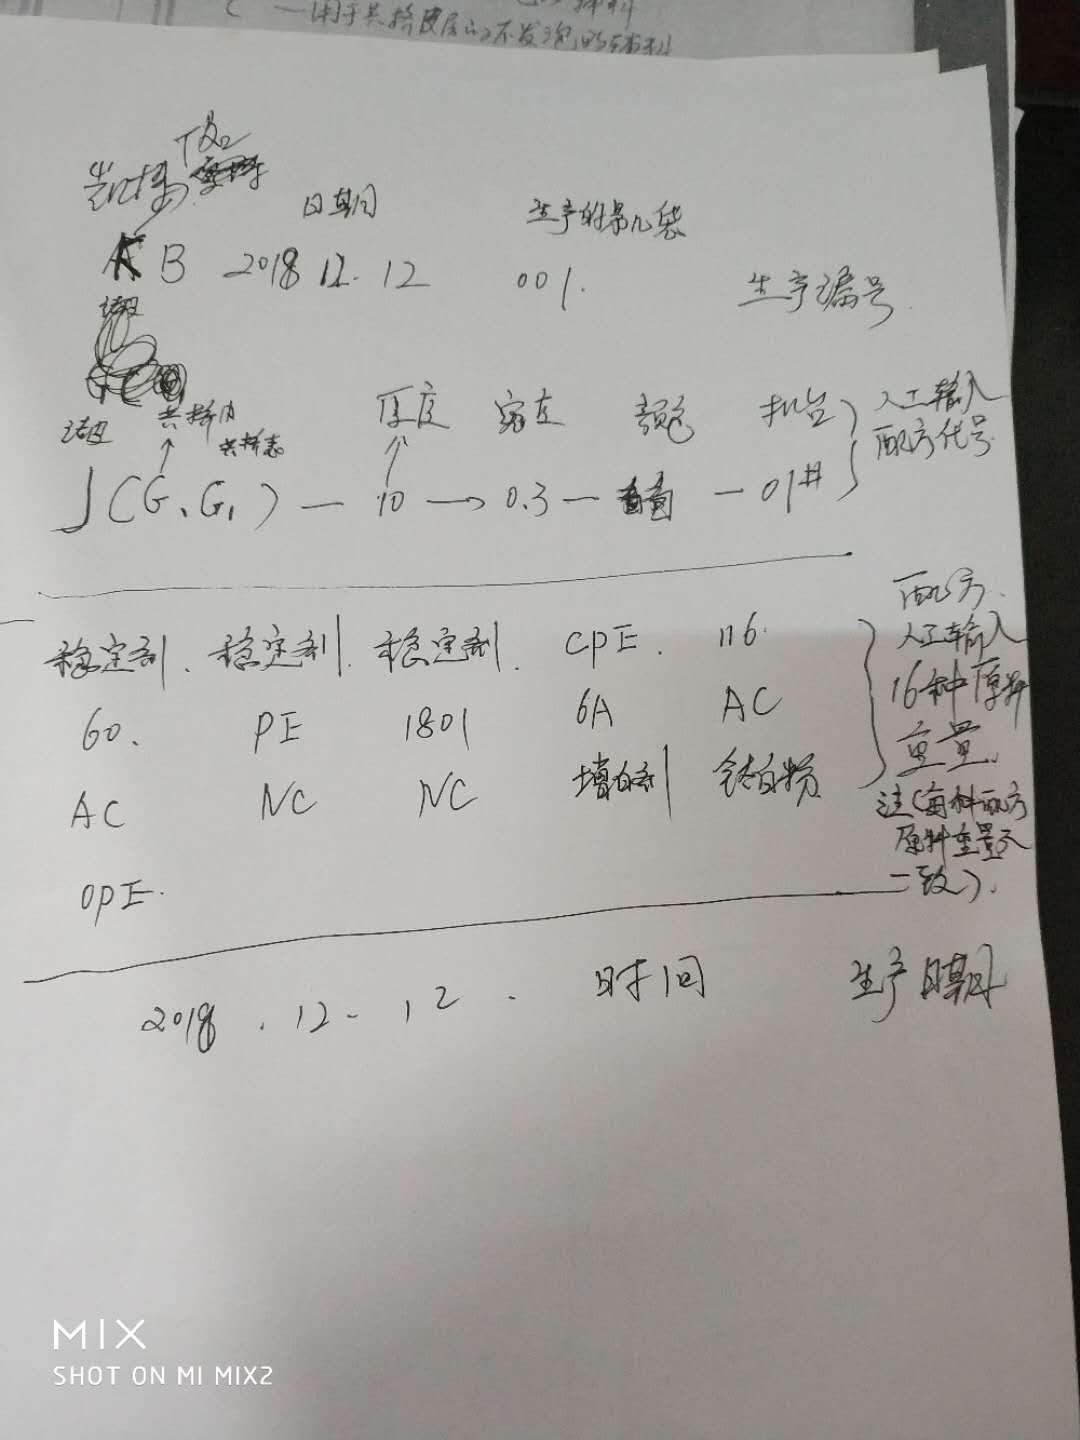 C —用于共挤皮层的不发泡的辅料
凯博
日期 生产的第几袋
B 2018 12.12 001. 生产编号
结皮
结皮 共挤内 共挤志 厚度 密度 颜色 机台 人工输入
配方代号
J(G、G1)—10→0.3— —01#
配方.
稳定剂. 稳定剂. 稳定剂. CPE. 116. 人工输入
60. PE 1801 6A AC 16种原料
重量.
AC NC NC 增白剂 钛白粉 注(每种配方
原料重量不
OPE. 一致).
2018.12-12. 时间 生产日期
MIX
SHOT ON MI MIX2